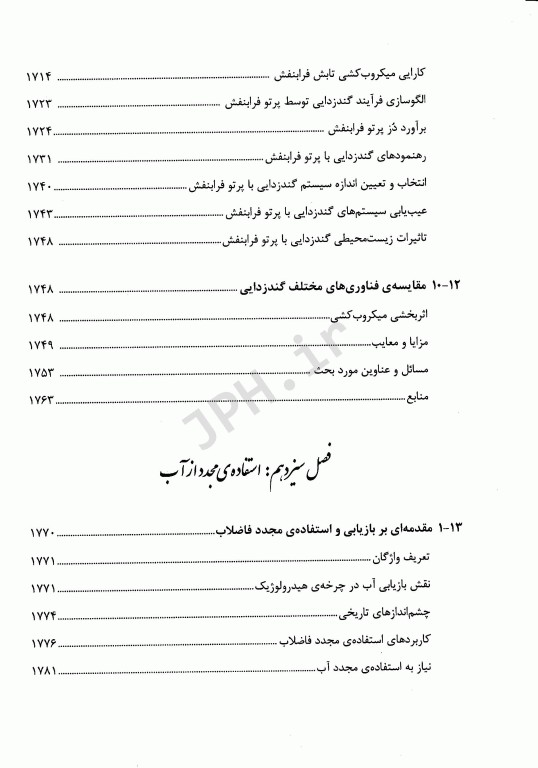 کارایی میکروب‌کشی تابش فرابنفش ........ ۱۷۱۴
الگوسازی فرآیند گندزدایی توسط پرتو فرابنفش ........ ۱۷۲۳
برآورد دُز پرتو فرابنفش ........ ۱۷۲۴
رهنمودهای گندزدایی با پرتو فرابنفش ........ ۱۷۳۱
انتخاب و تعیین اندازه سیستم گندزدایی با پرتو فرابنفش ........ ۱۷۴۰
عیب‌یابی سیستم‌های گندزدایی با پرتو فرابنفش ........ ۱۷۴۳
تاثیرات زیست‌محیطی گندزدایی با پرتو فرابنفش ........ ۱۷۴۸
۱۰-۱۲ مقایسه‌ی فناوری‌های مختلف گندزدایی ........ ۱۷۴۸
اثربخشی میکروب‌کشی ........ ۱۷۴۸
مزایا و معایب ........ ۱۷۴۹
مسائل و عناوین مورد بحث ........ ۱۷۵۳
منابع ........ ۱۷۶۳
JPH.ir
فصل سیزدهم: استفاده‌ی مجدد از آب
۱-۱۳ مقدمه‌ای بر بازیابی و استفاده‌ی مجدد فاضلاب ........ ۱۷۷۰
تعریف واژگان ........ ۱۷۷۱
نقش بازیابی آب در چرخه‌ی هیدرولوژیک ........ ۱۷۷۱
چشم‌اندازهای تاریخی ........ ۱۷۷۴
کاربردهای استفاده‌ی مجدد فاضلاب ........ ۱۷۷۶
نیاز به استفاده‌ی مجدد آب ........ ۱۷۸۱